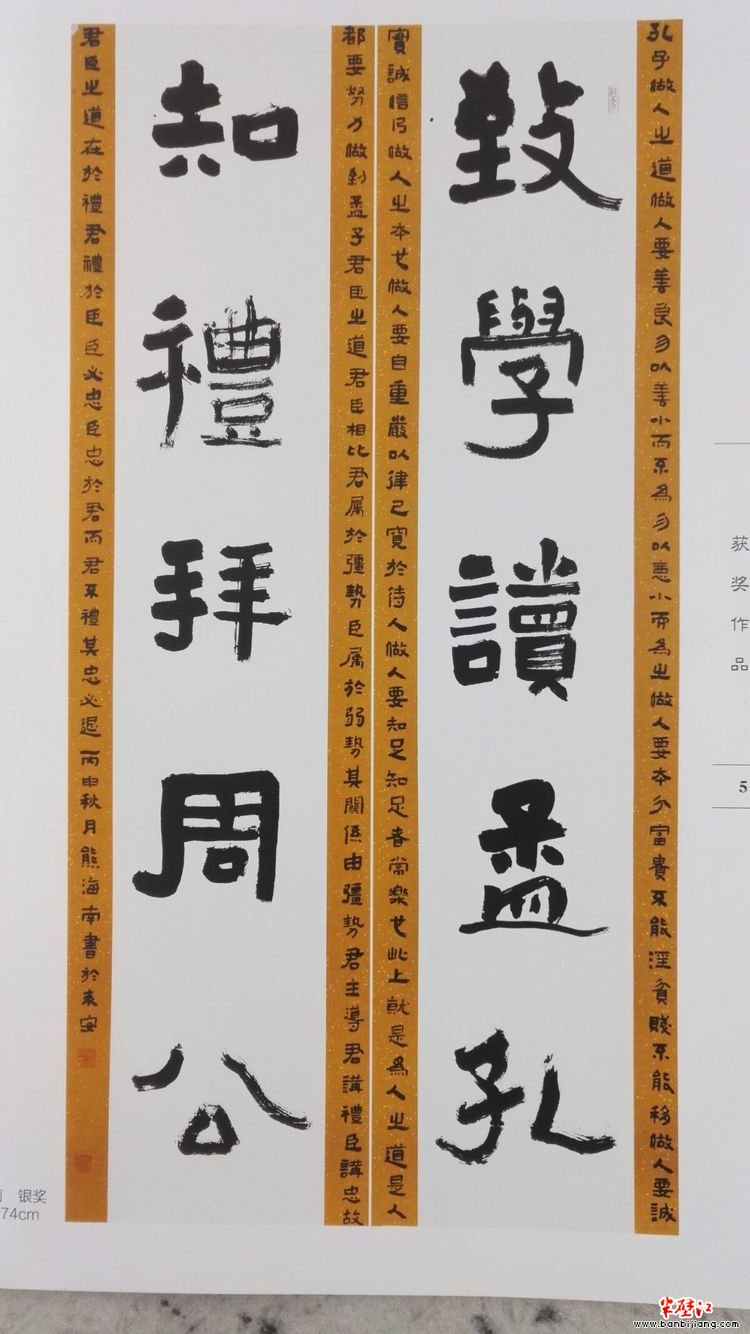 致學讀孟孔
知禮拜周公
孔子做人之道做人要善良勿以善小而不為勿以惡小而為之做人要本分富貴不能淫貧賤不能移做人要誠
實誠信乃做人之本也做人要自重嚴以律己寬於待人做人要知足知足者常樂也此上就是為人之道是人
都要努力做到孟子君臣之道君臣相比君屬於彊勢臣属於弱勢其關係由彊勢君主導君講禮臣講忠故
君臣之道在於禮君禮於臣臣必忠臣忠於君而君不禮其忠必退丙申秋月熊海南書於東安
获奖作品
5
银奖
74cm
半壁江
www.banbijiang.com